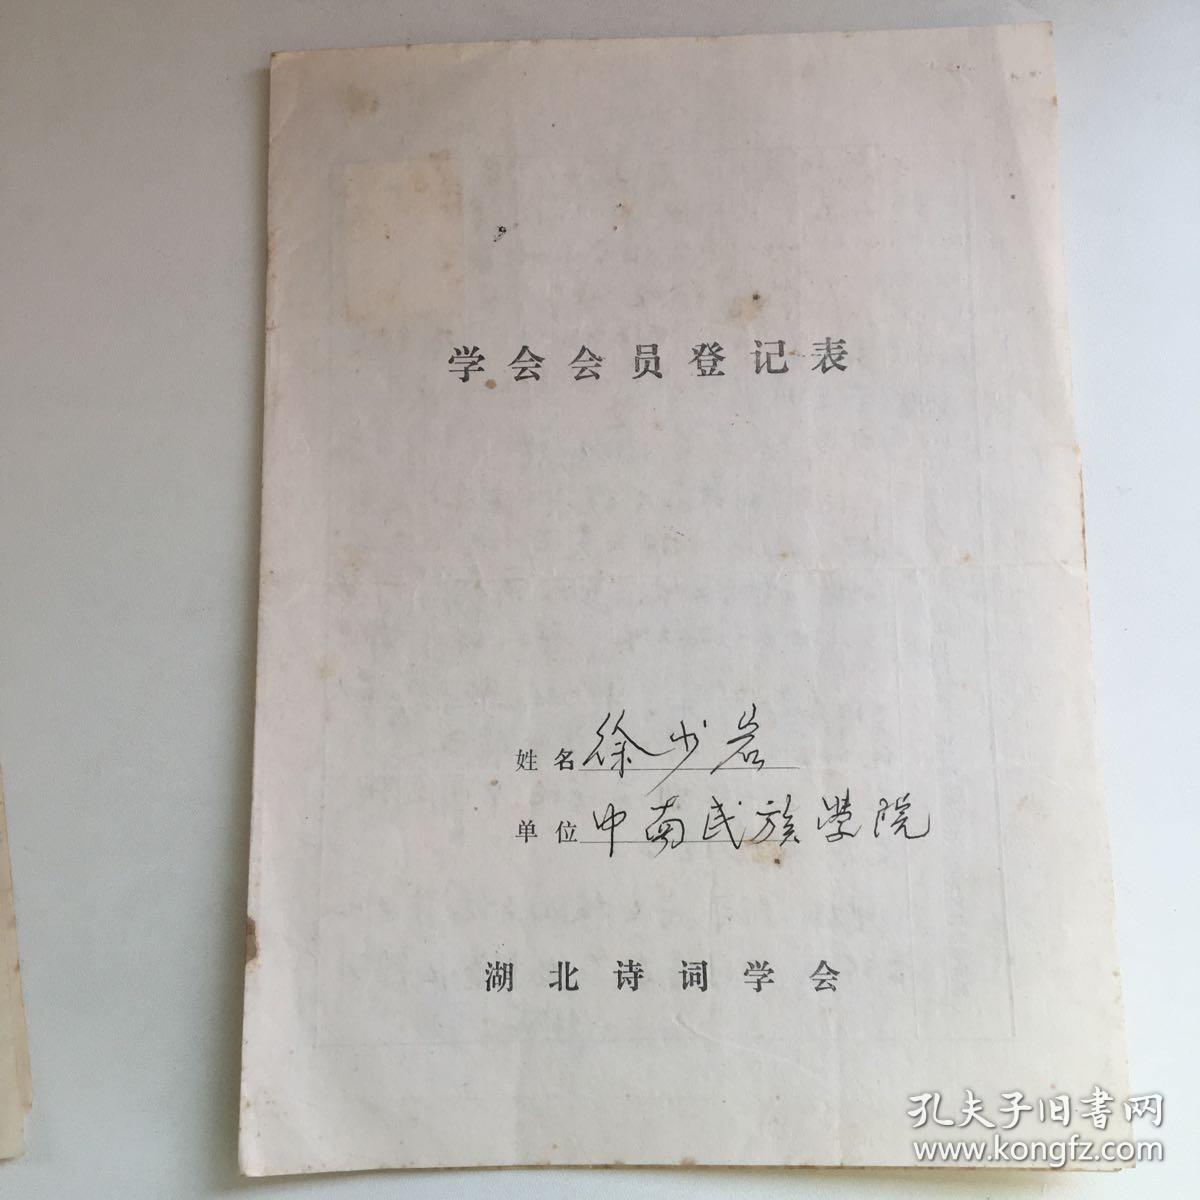 学会会员登记表
姓名 徐少岩
单位 中南民族學院
湖北诗词学会
孔夫子旧書网
www.kongfz.com